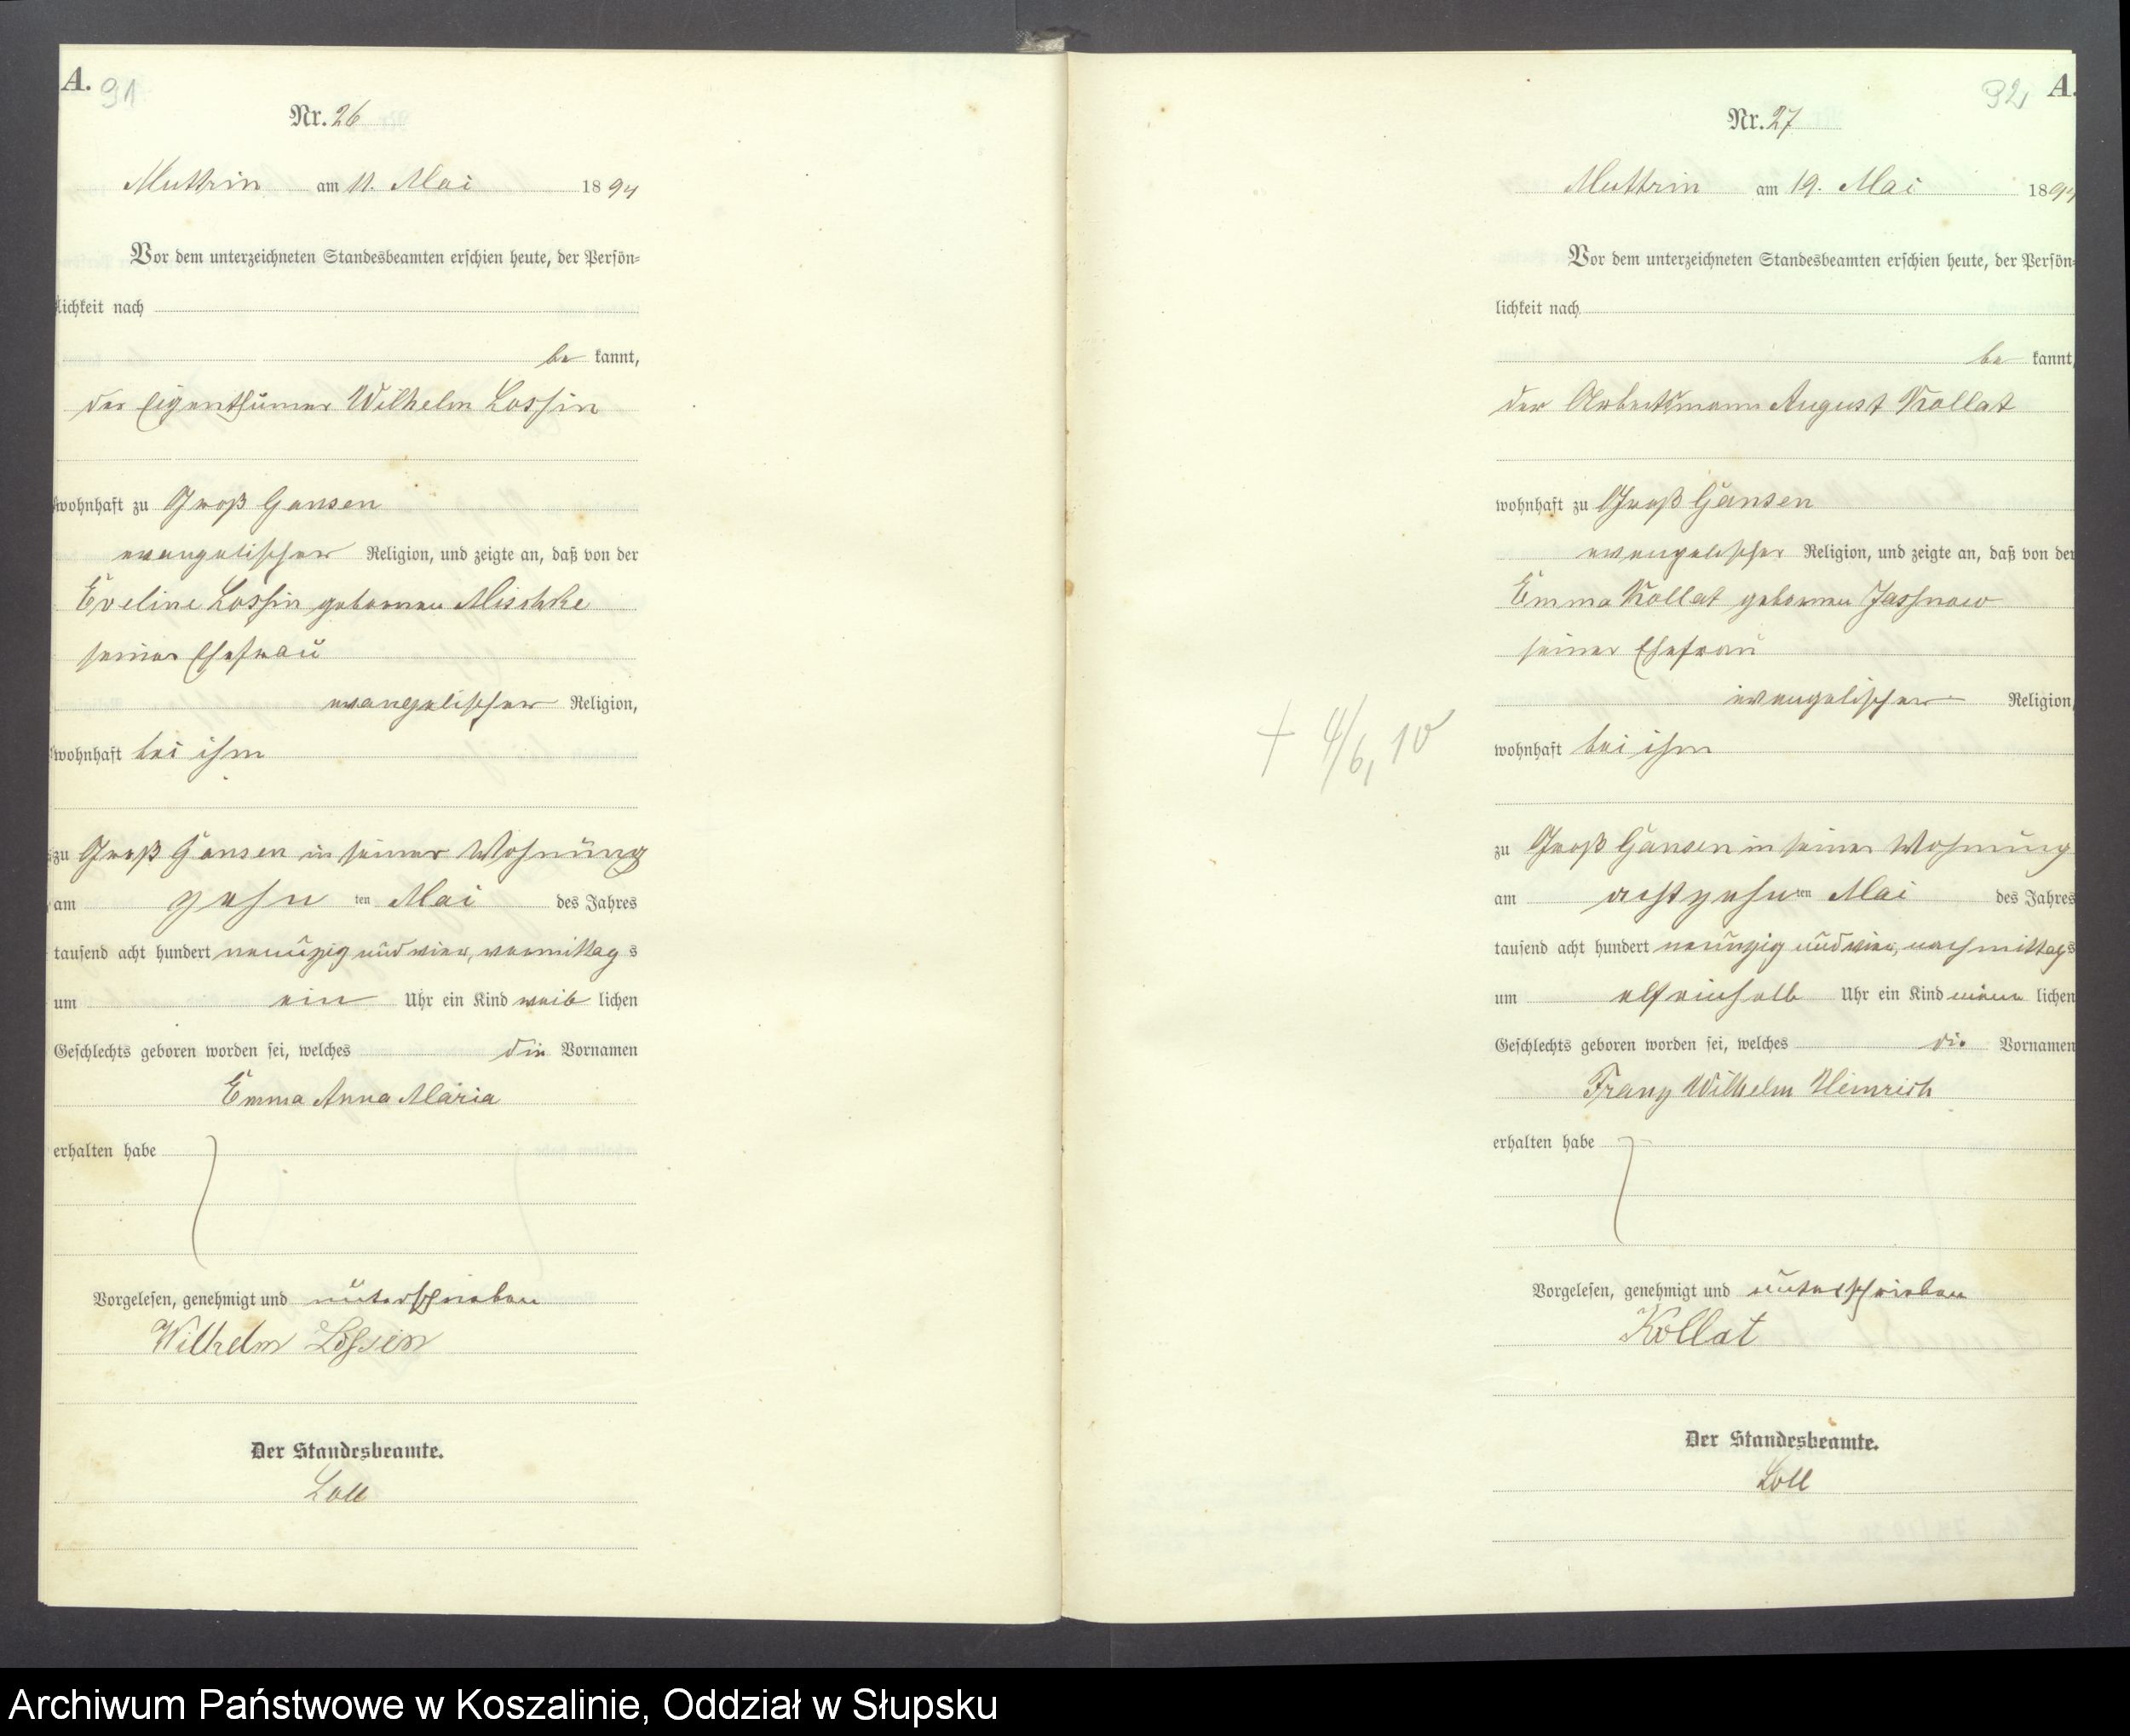 A. 91
Nr. 26
Muttrin am 11. Mai 1894
Vor dem unterzeichneten Standesbeamten erschien heute, der Persön=
lichkeit nach
be kannt,
der Eigenthümer Wilhelm Lossin
wohnhaft zu Groß Gansen
evangelischer Religion, und zeigte an, daß von der
Eveline Lossin geborenen Mischke
seiner Ehefrau
evangelischer Religion,
wohnhaft bei ihm
zu Groß Gansen in seiner Wohnung
am zehn ten Mai des Jahres
tausend acht hundert neunzig und vier, vormittag s
um ein Uhr ein Kind weib lichen
Geschlechts geboren worden sei, welches die Vornamen
Emma Anna Maria
erhalten habe
Vorgelesen, genehmigt und unterschrieben
Wilhelm Lossin
Der Standesbeamte.
Loll
92 A.
Nr. 27
Muttrin am 19. Mai 1894
Vor dem unterzeichneten Standesbeamten erschien heute, der Persön=
lichkeit nach
be kannt,
der Arbeitsmann August Kollat
wohnhaft zu Groß Gansen
evangelischer Religion, und zeigte an, daß von der
Emma Kollat geborenen Jassnow
seiner Ehefrau
evangelischer Religion,
wohnhaft bei ihm
+ 4/6, 10
zu Groß Gansen in seiner Wohnung
am achtzehn ten Mai des Jahres
tausend acht hundert neunzig und vier, nachmittags
um elfeinhalb Uhr ein Kind männ lichen
Geschlechts geboren worden sei, welches die Vornamen
Franz Wilhelm Heinrich
erhalten habe
Vorgelesen, genehmigt und unterschrieben
Kollat
Der Standesbeamte.
Loll
Archiwum Państwowe w Koszalinie, Oddział w Słupsku